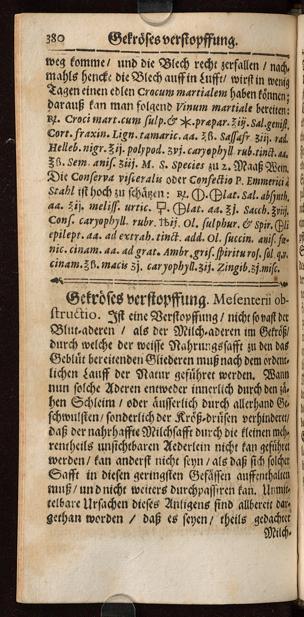 380 Gekröses verstopffung.
weg komme/ und die Blech recht zerfallen/ nach-
mahls hencke die Blech auff in Lufft/ wirst in wenig
Tagen einen edlen Crocum martialem haben können;
darauß kan man folgend Vinum martiale bereiten:
℞. Croci mart. cum sulp. & ✶. præpar. ʒij. Sal. genist.
Cort. fraxin. Lign. tamaric. aa. ʒß. Sassafr ʒiij. rad.
Helleb. nigr. ʒij. polypod. ʒvj. caryophyll rub. tinct. aa.
ʒß. Sem. anis. ʒiij. M. S. Species zu 2. Maaß Wein.
Die Conserva visceralis oder Confectio P. Emmerici à
Stahl ist hoch zu schätzen: ℞. Sal. absynth.
aa. ʒij. meliss. urtic. aa. ʒj. Sacch. ʒviij.
Cons. caryophyll. rubr. Ol. sulphur. & Spir.
epilept. aa. ad extrah. tinct. add. Ol. succin. anis. fœ-
nic. cinam. aa. ad grat. Ambr. gris. spiritu ros. sol. q. v.
cinam. ʒß. macis ʒj. caryophyll. ʒij. Zingib. ʒj. misc.
Gekröses verstopffung. Mesenterii ob-
structio. Ist eine Verstopffung/ nicht so vast der
Blut-aderen/ als der Milch-aderen im Gekröß/
durch welche der weisse Nahrungssafft zu den das
Geblüt bereitenden Gliederen muß nach dem ordent-
lichen Lauff der Natur geführet werden. Wann
nun solche Aderen entweder innerlich durch den zä-
hen Schleim/ oder äusserlich durch allerhand Ge-
schwulsten/ sonderlich der Kröß-drüsen verhinderet/
daß der nahrhaffte Milchsafft durch die kleinen meh-
rentheils unsichtbaren Aederlein nicht kan geführet
werden/ kan anderst nicht seyn/ als daß sich solcher
Safft in diesen geringsten Gefässen auffenthalten
muß/ und nicht weiters durchpassiren kan. Unmit-
telbare Ursachen dieses Anligens sind allbereit dar-
gethan worden/ daß es seyen/ theils gedachter
Milch-